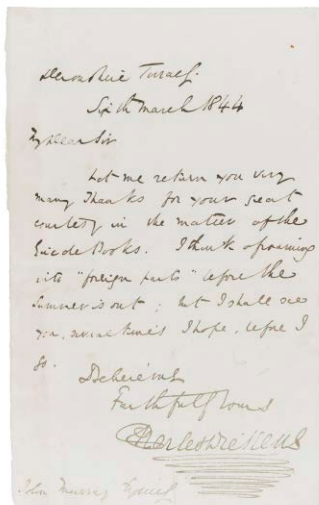 Devonshire Terrace.
Sixth March 1844
My Dear Sir
Let me return you very
many thanks for your great
courtesy in the matter of the
Guide Books. I think of running
into "foreign parts" before the
Summer is out; but I shall see
you, several times I hope, before I
go.
Believe me
Faithfully Yours
Charles Dickens
John Murray Esquire